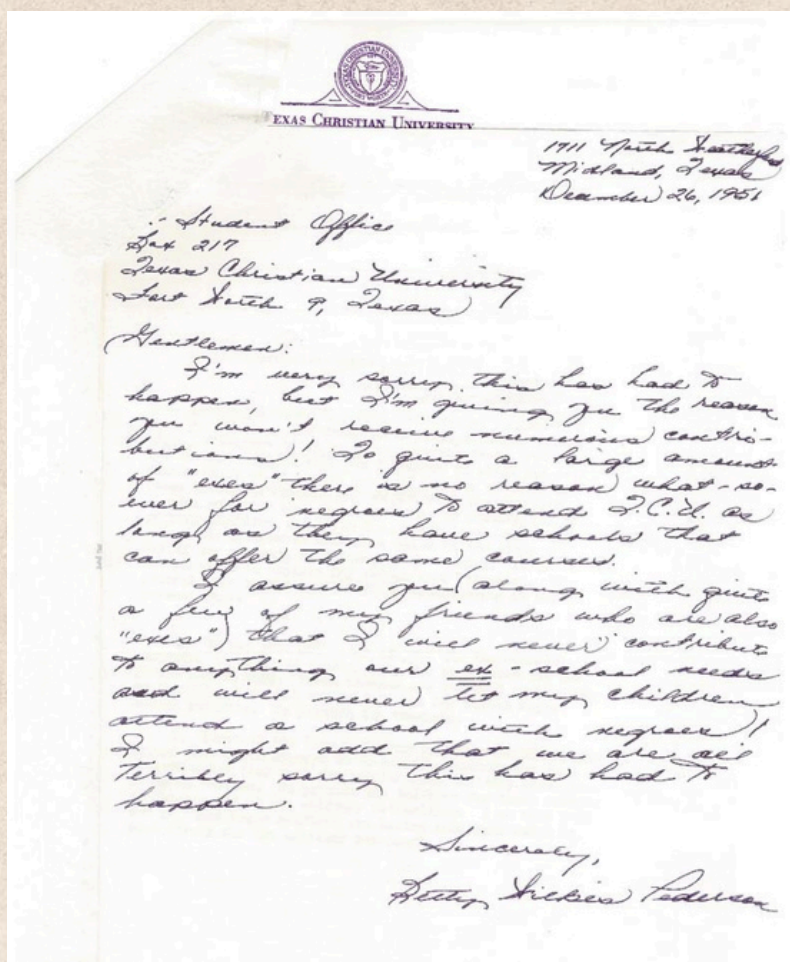 TEXAS CHRISTIAN UNIVERSITY
EXAS CHRISTIAN UNIVERSITY
1711 North Weatherford
Midland, Texas
December 26, 1951
Student Office
Box 217
Texas Christian University
Fort Worth 9, Texas
Gentlemen:
I'm very sorry this has had to
happen, but I'm giving you the reason
you won't receive numerous contri-
butions! To quite a large amount
of "exes" there is no reason what-so-
ever for negroes to attend T.C.U. as
long as they have schools that
can offer the same courses.
I assure you (along with quite
a few of my friends who are also
"exes") that I will never contribute
to anything our ex-school needs
and will never let my children
attend a school with negroes!
I might add that we are all
terribley sorry this has had to
happen.
Sincerely,
Betty Wilkies Pederson